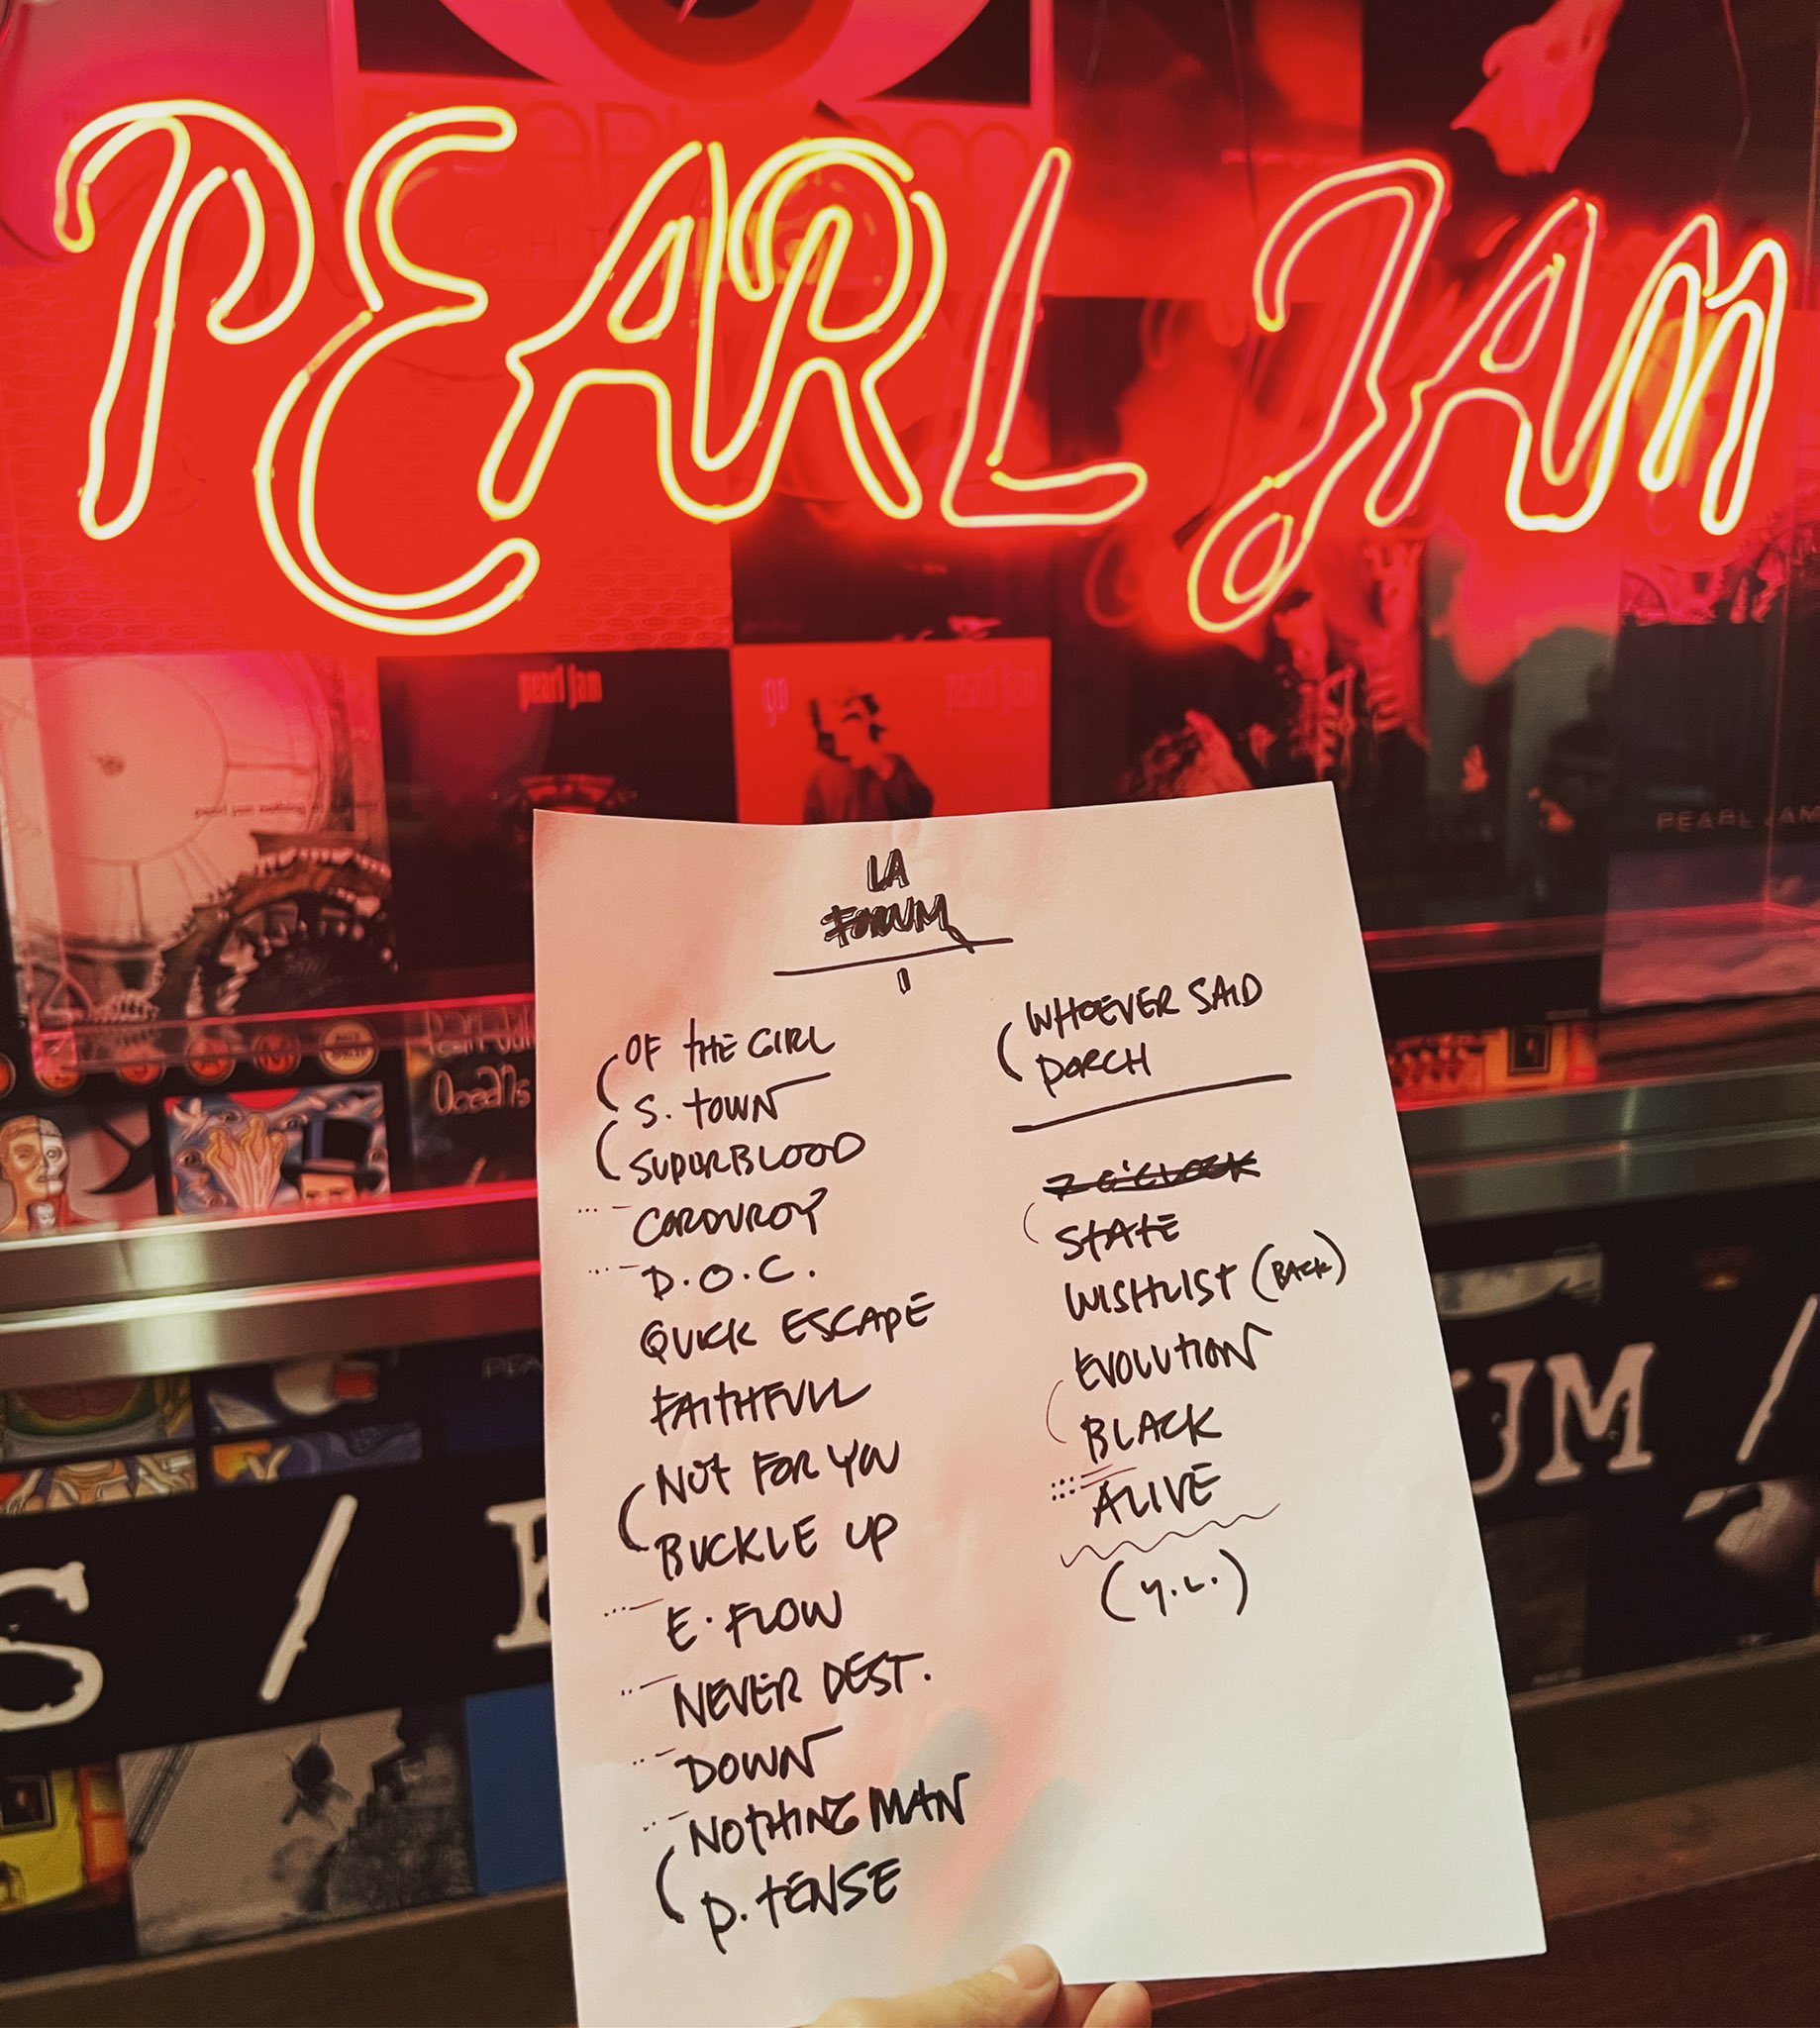 PEARL JAM
pearl jam
go
pearl jam
PEARL JAM
Oceans
S /
UM /
LA
FORUM
1
OF THE GIRL
S. TOWN
SUPURBLOOD
CORDUROY
D.O.C.
QUICK ESCAPE
FAITHFULL
NOT FOR YOU
BUCKLE UP
E. FLOW
NEVER DEST.
DOWN
NOTHING MAN
P. TENSE
WHOEVER SAID
PORCH
7 O'CLOCK
STATE
WISHLIST (BACK)
EVOLUTION
BLACK
ALIVE
(Y.L.)